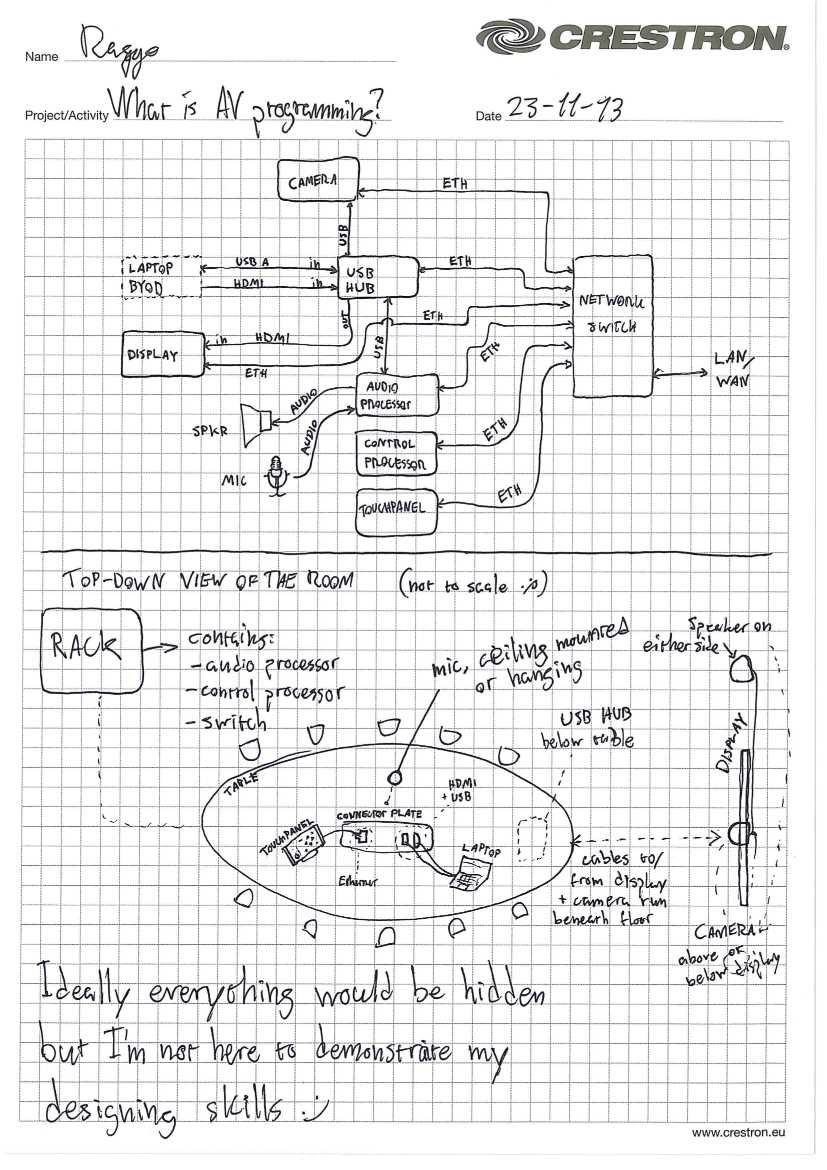 CRESTRON®
Name Ragyo
Project/Activity What is AV programming?
Date 23-11-13
CAMERA
ETH
USB
LAPTOP
BYOD
USB A in
HDMI in
USB
HUB
ETH
NETWORK
SWITCH
OUT
ETH
in HDMI
DISPLAY
ETH
USB
ETH
LAN/
WAN
AUDIO
PROCESSOR
AUDIO
SPKR
AUDIO
MIC
CONTROL
PROCESSOR
ETH
TOUCHPANEL
ETH
TOP-DOWN VIEW OF THE ROOM (not to scale :p)
RACK
contains:
- audio processor
- control processor
- switch
mic, ceiling mounted
or hanging
Speaker on
either side
USB HUB
below table
DISPLAY
TABLE
HDMI
+ USB
CONNECTOR PLATE
TOUCHPANEL
Ethernet
LAPTOP
cables to/
from display
+ camera run
beneath floor
CAMERA
above or
below display
Ideally everything would be hidden
but I'm not here to demonstrate my
designing skills :)
www.crestron.eu